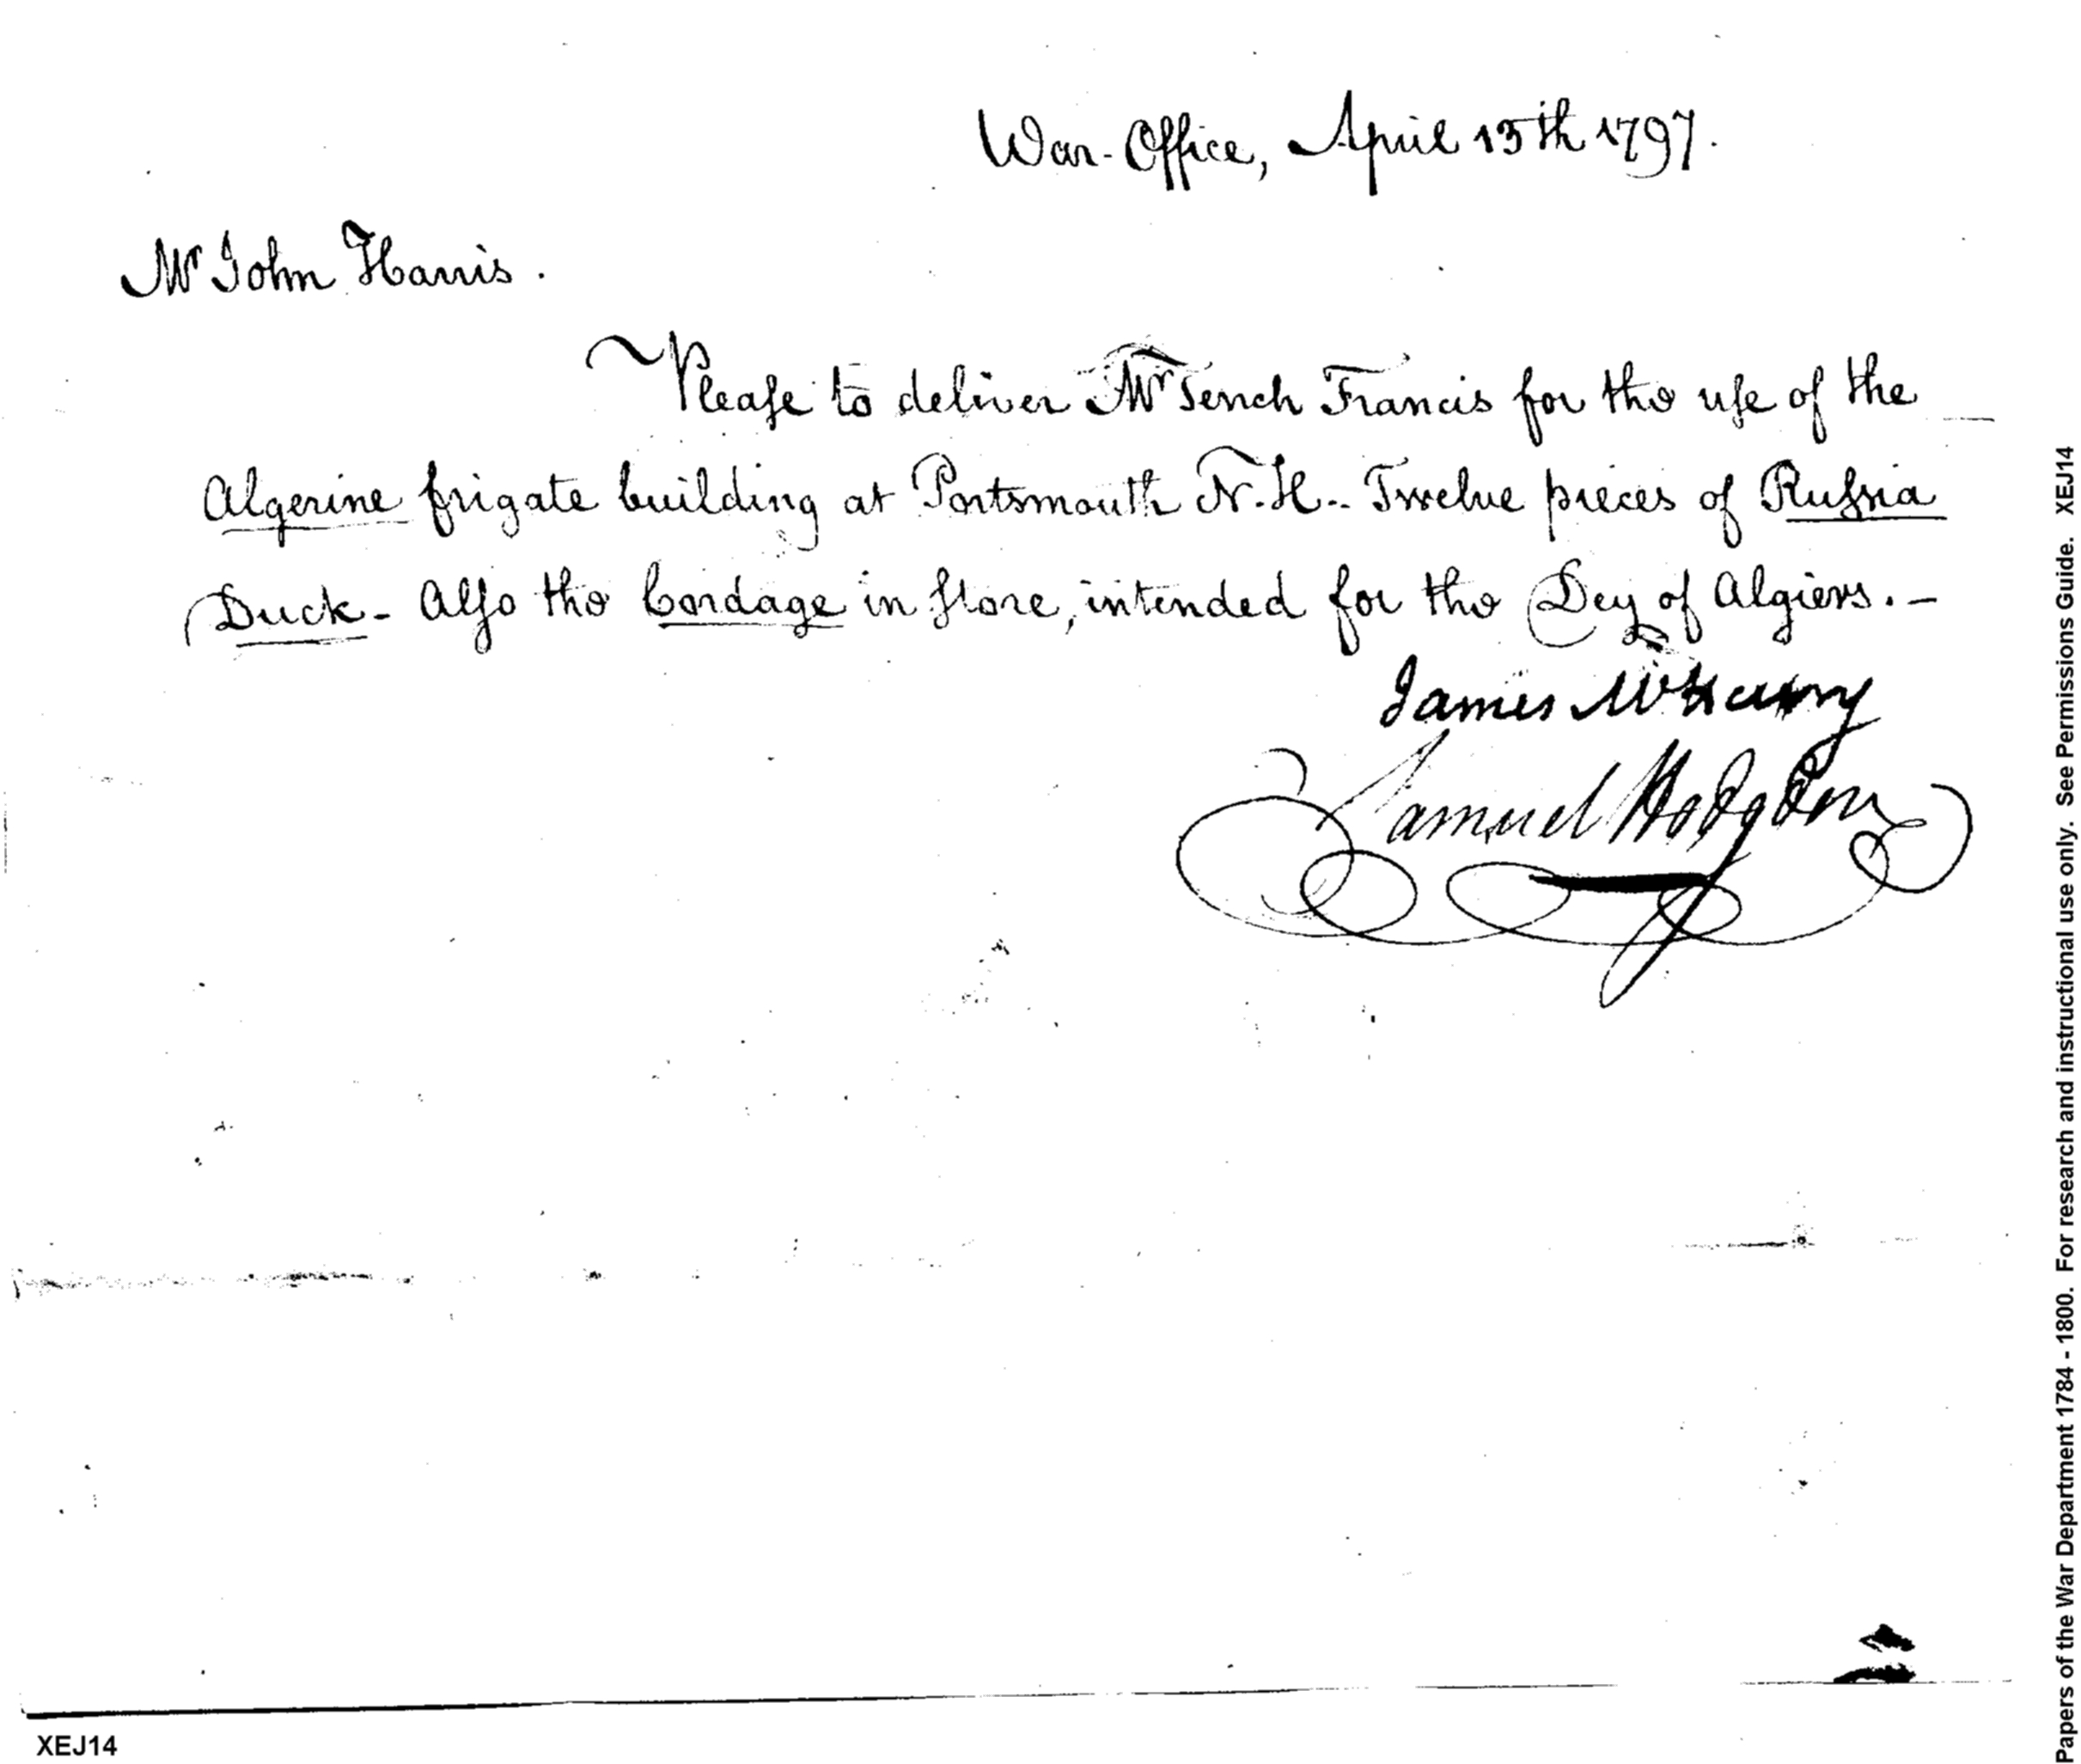 War-Office, April 13th 1797.
Mr John Harris.
Please to deliver Mr Tench Francis for the use of the
Algerine frigate building at Portsmouth N.H.- Twelve pieces of Russia
Duck - Also the Cordage in store, intended for the Dey of Algiers. -
James McHenry
Samuel Hodgdon
XEJ14
Papers of the War Department 1784 - 1800. For research and instructional use only. See Permissions Guide. XEJ14